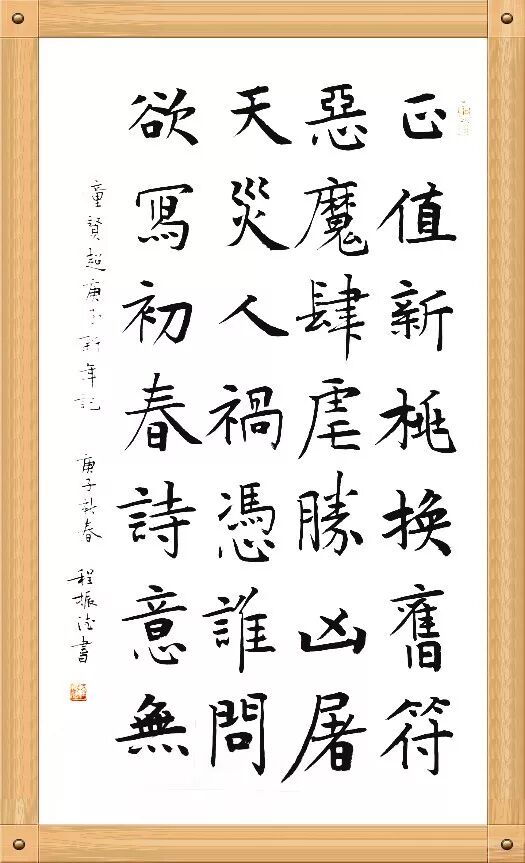 正值新桃換舊符
惡魔肆虐勝凶屠
天災人禍憑誰問
欲寫初春詩意無
童賢超庚子新年記
庚子初春
程振法書